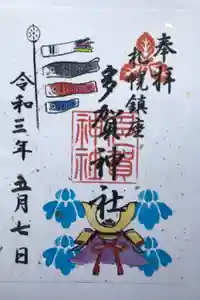 奉拝
札幌鎮座
多賀神社
令和三年 五月七日